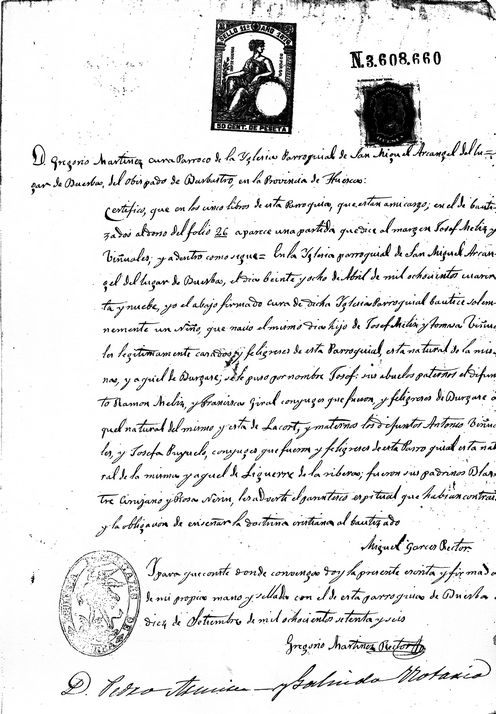 SELLO 11º AÑO 1876
50 CENT. DE PESETA
N.3.608.660
D. Gregorio Martinez cura Parroco de la Yglesia Parroquial de San Miguel Arcangel del lu=
gar de Buerba, del obispado de Barbastro, en la Provincia de Huesca:
Certifico, que en los cinco libros de esta Parroquia, que estan a mi cargo; en el de bauti
zados al dorso del folio 26 aparece una partida que dice al margen Josef Meliz y
Viñuales; y adentro como sigue= En la Yglesia parroquial de San Miguel Arcan
gel del lugar de Buerba, el dia beinte y ocho de Abril de mil ochocientos cuaren
ta y nuebe, yo el abajo firmado cura de dicha Yglesia Parroquial bautice solem
nemente un Niño, que nacio el mismo dia hijo de Josef Meliz y Tomasa Viñua
les legitimamente casados, y feligreses de esta Parroquial, esta natural de la mis
ma, y aquel de Burgase; se le puso por nombre Josef: sus abuelos paternos el difun
to Ramon Meliz, y Francisca Giral conyuges que fueron, y feligreses de Burgase a
quel natural del mismo y esta de Lacort, y maternos los difuntos Antonio Viñua
les, y Josefa Puyuelo, conyuges que fueron y feligreses de esta Parroquial esta natu
ral de la misma y aquel de Liguerre de la ribera; fueron sus padrinos Blas
Cirujano y Rosa Nerin, les adverti el parentesco espiritual que habian contraido
y la obligacion de enseñar la doctrina cristiana al bautizado
Miguel Garces Rector
Y para que conste donde convenga doy la presente escrita y firmada
de mi propia mano y sellada con el de esta parroquia de Buerba a
diez de Setiembre de mil ochocientos setenta y seis
Gregorio Martinez Rector
D. Pedro y Galindo Notario